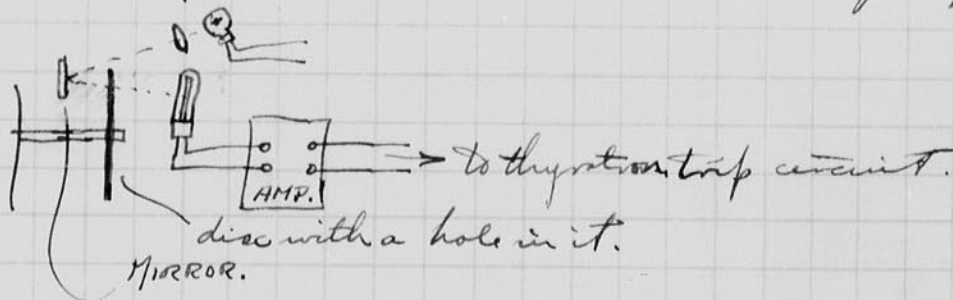 to thyratron trip circuit.
AMP.
disc with a hole in it.
MIRROR.